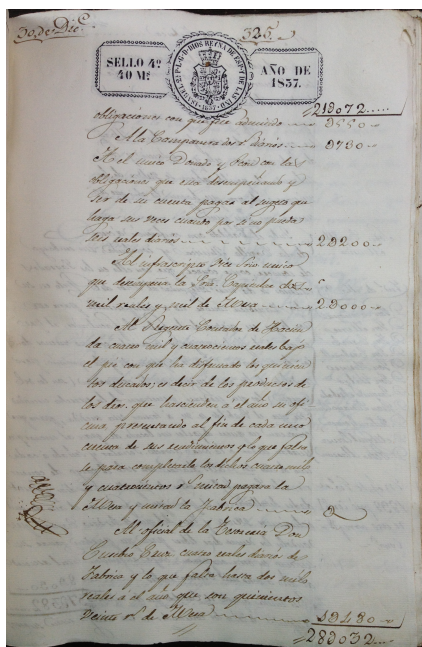 30 de Dic.e
325
SELLO 4º
40 Ms
AÑO DE
1837.
ISABEL 2ª P. L. G. D. DIOS REINA DE ESP. Y DE LAS IND.
1837
219072
obligaciones con que fue admitido 3550
A la Campanera dos rs diarios 3730
Al el unico Donado y con las
obligaciones que esta desempeñando y
ser de su cuenta pagar al sugeto que
haga sus veces cuando por si no pueda
seis reales diarios 23200
Al infrascripto Vice Srio unico
que desempeña la Sria Capitular dos
mil reales y mil de Mesa 23000
Al Regente Contador de Hacien
da cuatro mil y cuatrocientos reales bajo
el pie con que ha disfrutado los quinien
tos ducados; es decir de los productos de
los dros. que hascienden a el año su ofi
cina presentando al fin de cada uno
cuenta de sus rendimientos y lo que falte
se para completarle los dichos cuatro mil
y cuatrocientos rs mitad pagara la
Mesa y mitad la fabrica
Al oficial de la Tesoreria Don
Eusebio cuatro reales diarios de
Fabrica y lo que falta hasta dos mil
reales á el año que son quinientos
veinte rs de Mesa 13480
283032